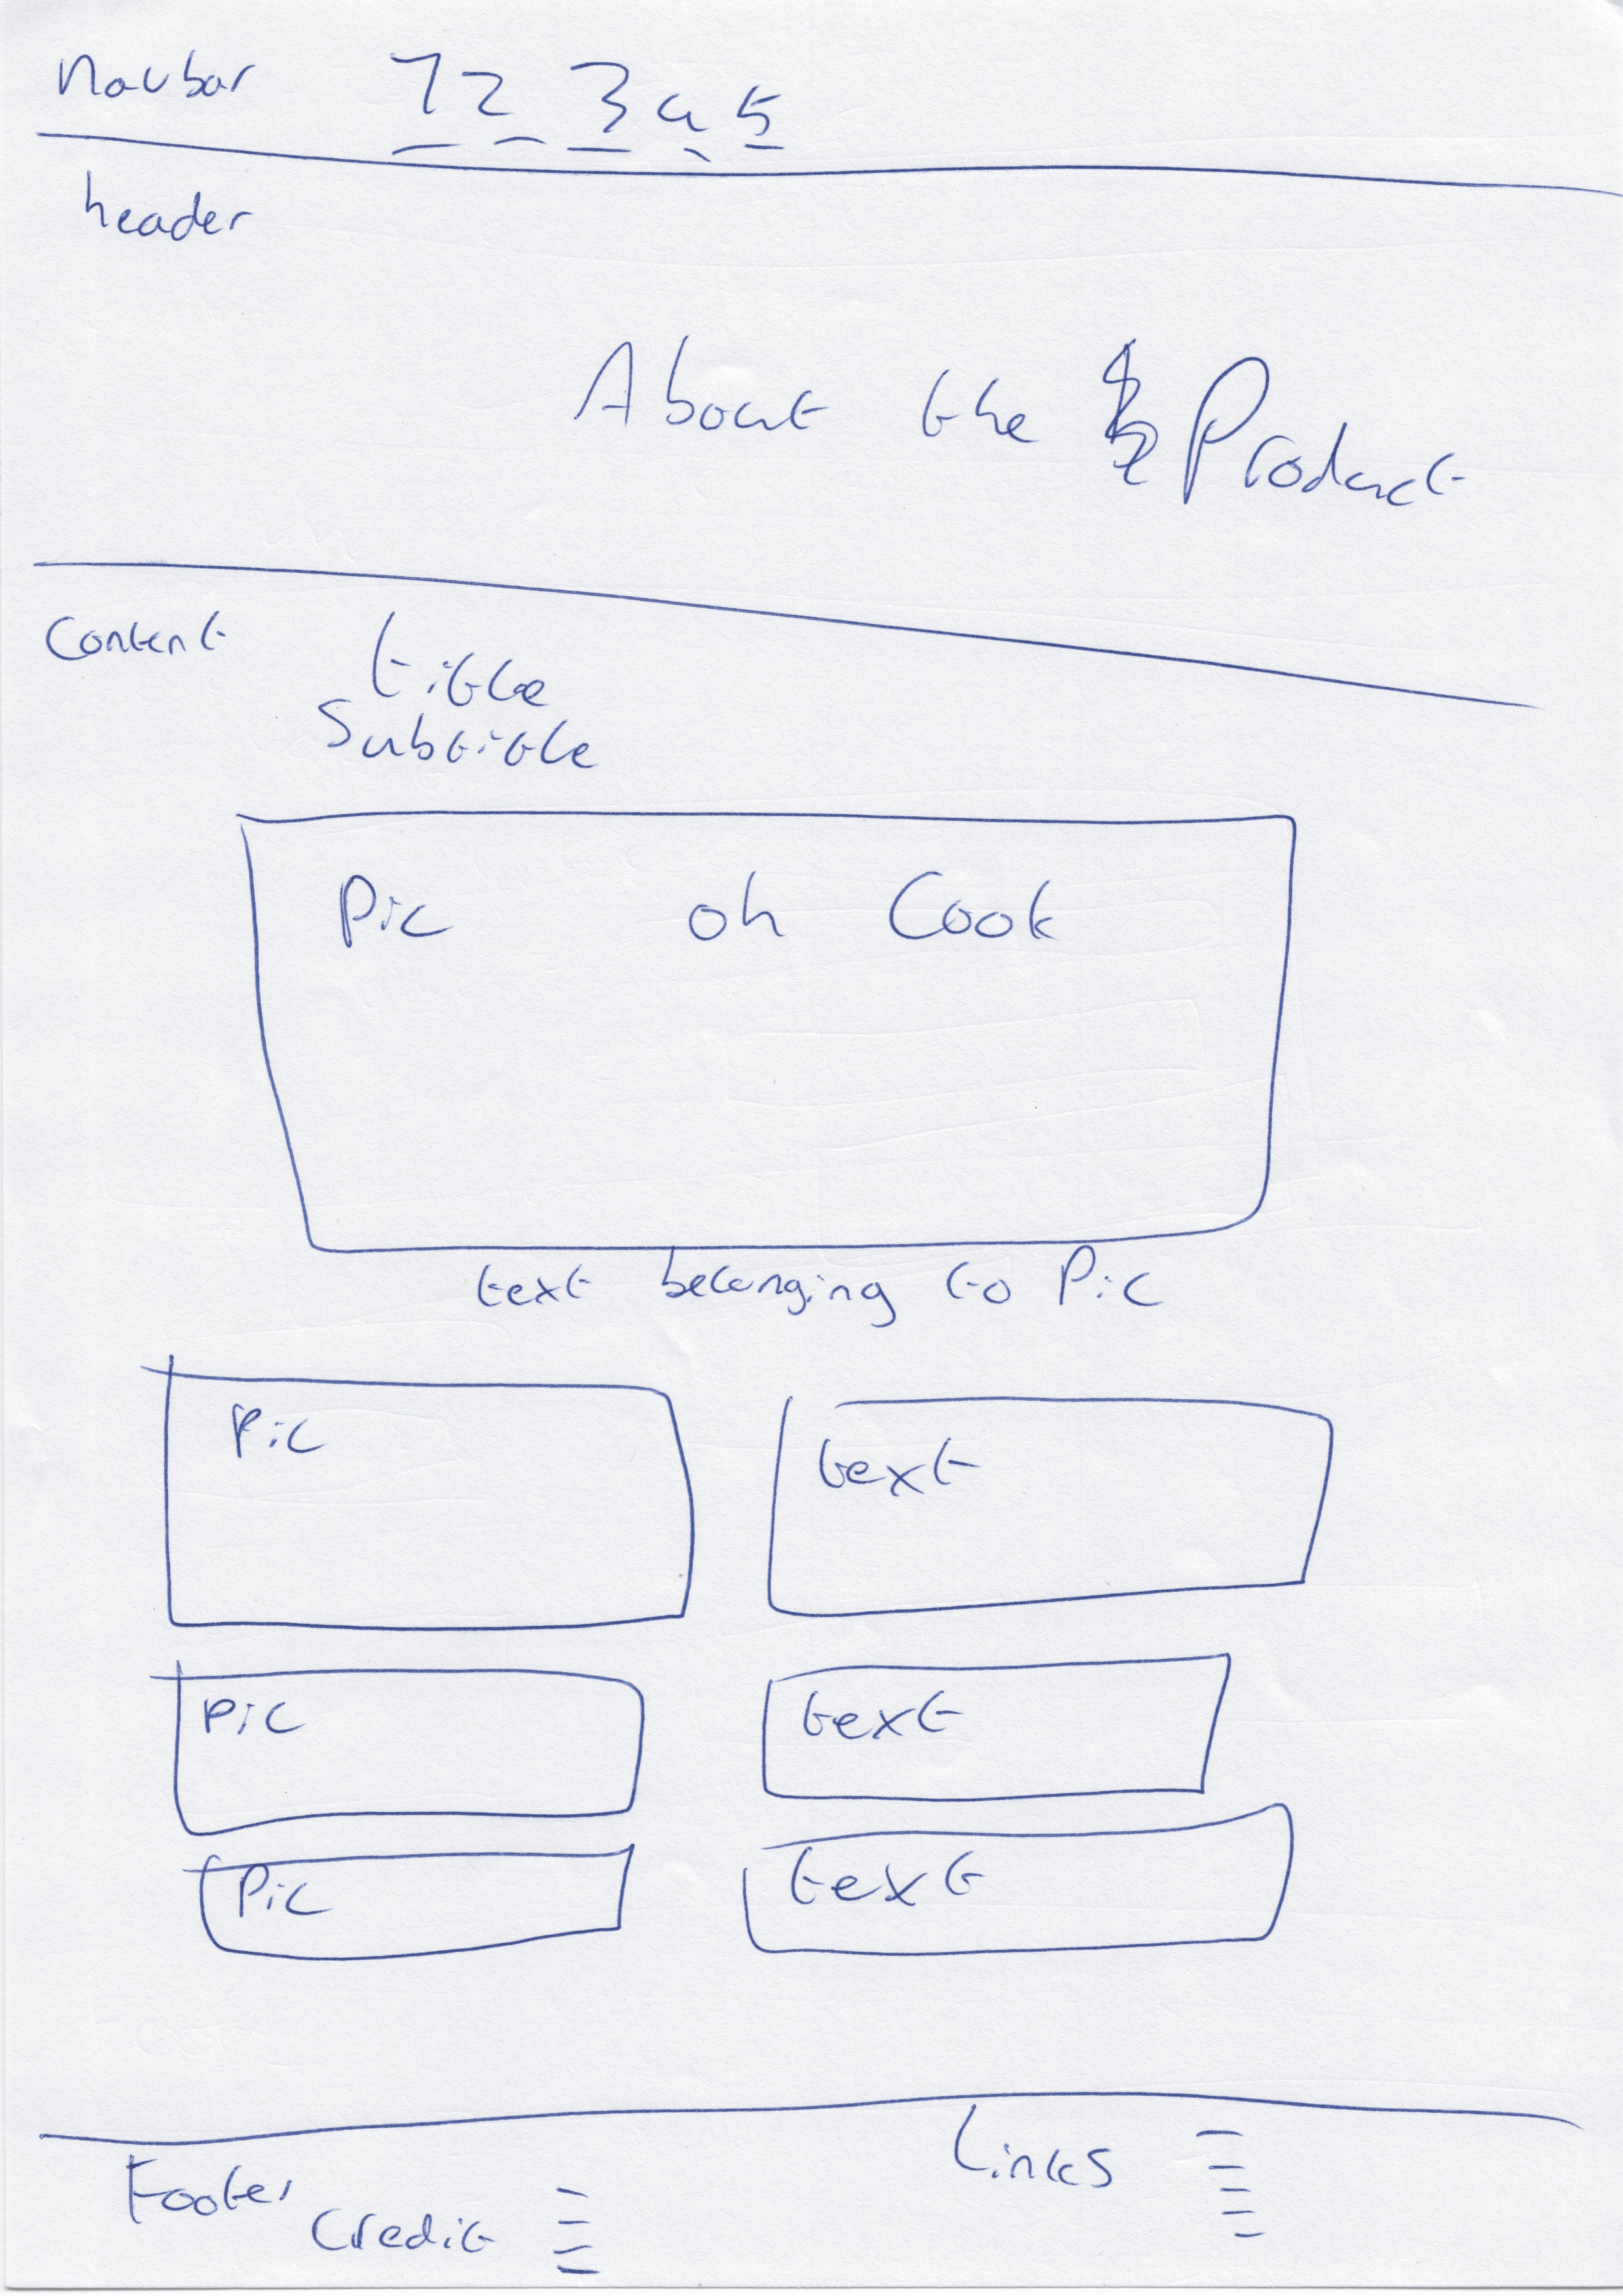 Navbar 1 2 3 4 5
header
About the Product
Content
title
Subtitle
Pic oh Cook
text belonging to Pic
Pic text
Pic text
Pic text
Footer
Links
Credit